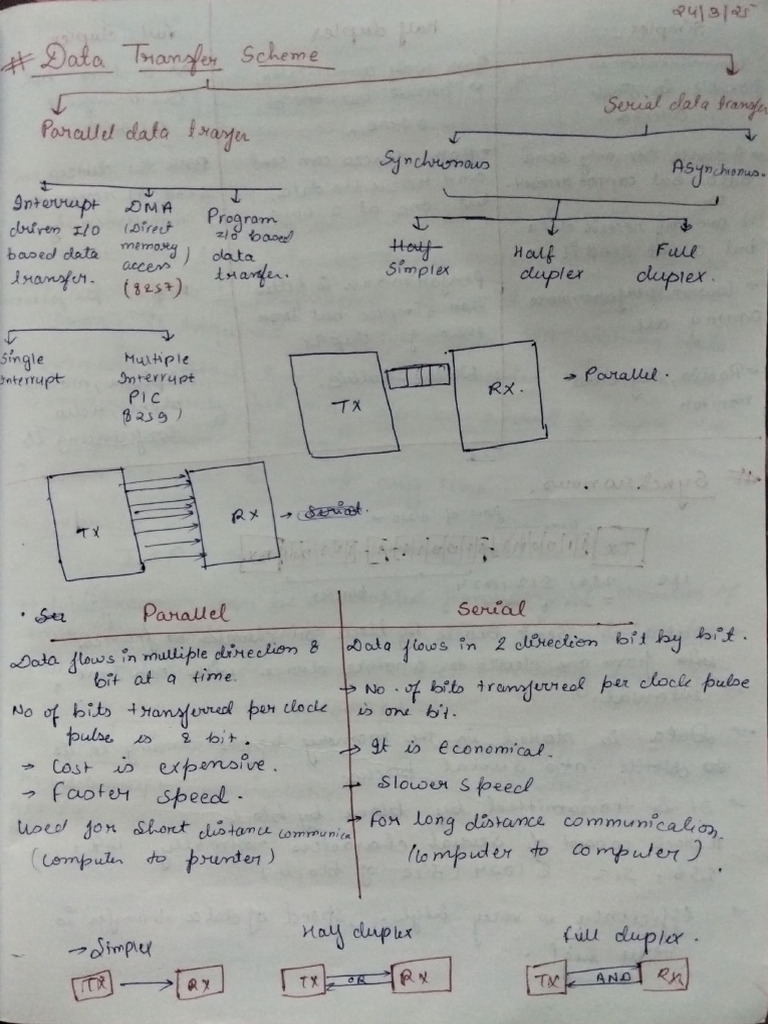 24/3/25
# Data Transfer Scheme
Parallel data transfer
Serial data transfer
Synchronous
Asynchronus.
Interrupt
driven I/O
based data
transfer.
DMA
(Direct
memory
access)
(8257)
Program
I/O based
data
transfer.
Half
Simplex
Half
duplex
Full
duplex.
Single
Interrupt
Multiple
Interrupt
PIC
(8259)
TX
RX.
→ Parallel.
TX
RX
→ Serial.
Parallel
Serial
Data flows in multiple direction 8
bit at a time.
No of bits transferred per clock
pulse is 8 bit.
→ Cost is expensive.
→ Faster speed.
Used for short distance communica
(computer to printer)
Data flows in 2 direction bit by bit.
→ No. of bits transferred per clock pulse
is one bit.
→ It is economical.
→ Slower speed
→ For long distance communication.
(computer to computer)
→ Simplex
Half duplex
Full duplex.
TX
RX
TX
OR
RX
TX
AND
RX